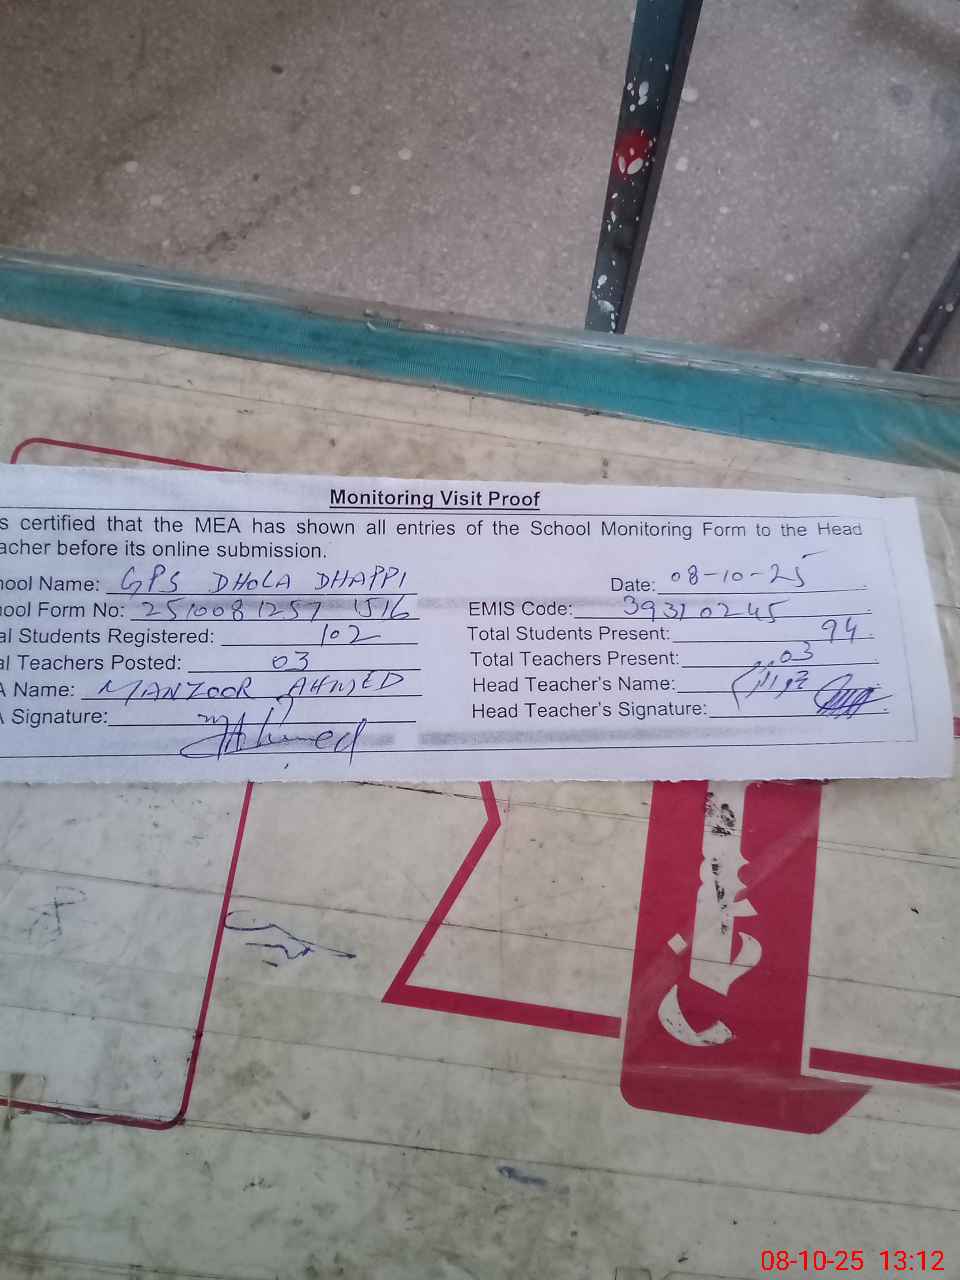 Monitoring Visit Proof
s certified that the MEA has shown all entries of the School Monitoring Form to the Head
acher before its online submission.
hool Name: GPS DHOLA DHAPPI Date: 08-10-25
hool Form No: 2510081257 1516 EMIS Code: 39310245
al Students Registered: 102 Total Students Present: 94
al Teachers Posted: 03 Total Teachers Present: 03
A Name: MANZOOR AHMED Head Teacher's Name:
A Signature: MAhmed Head Teacher's Signature:
08-10-25 13:12